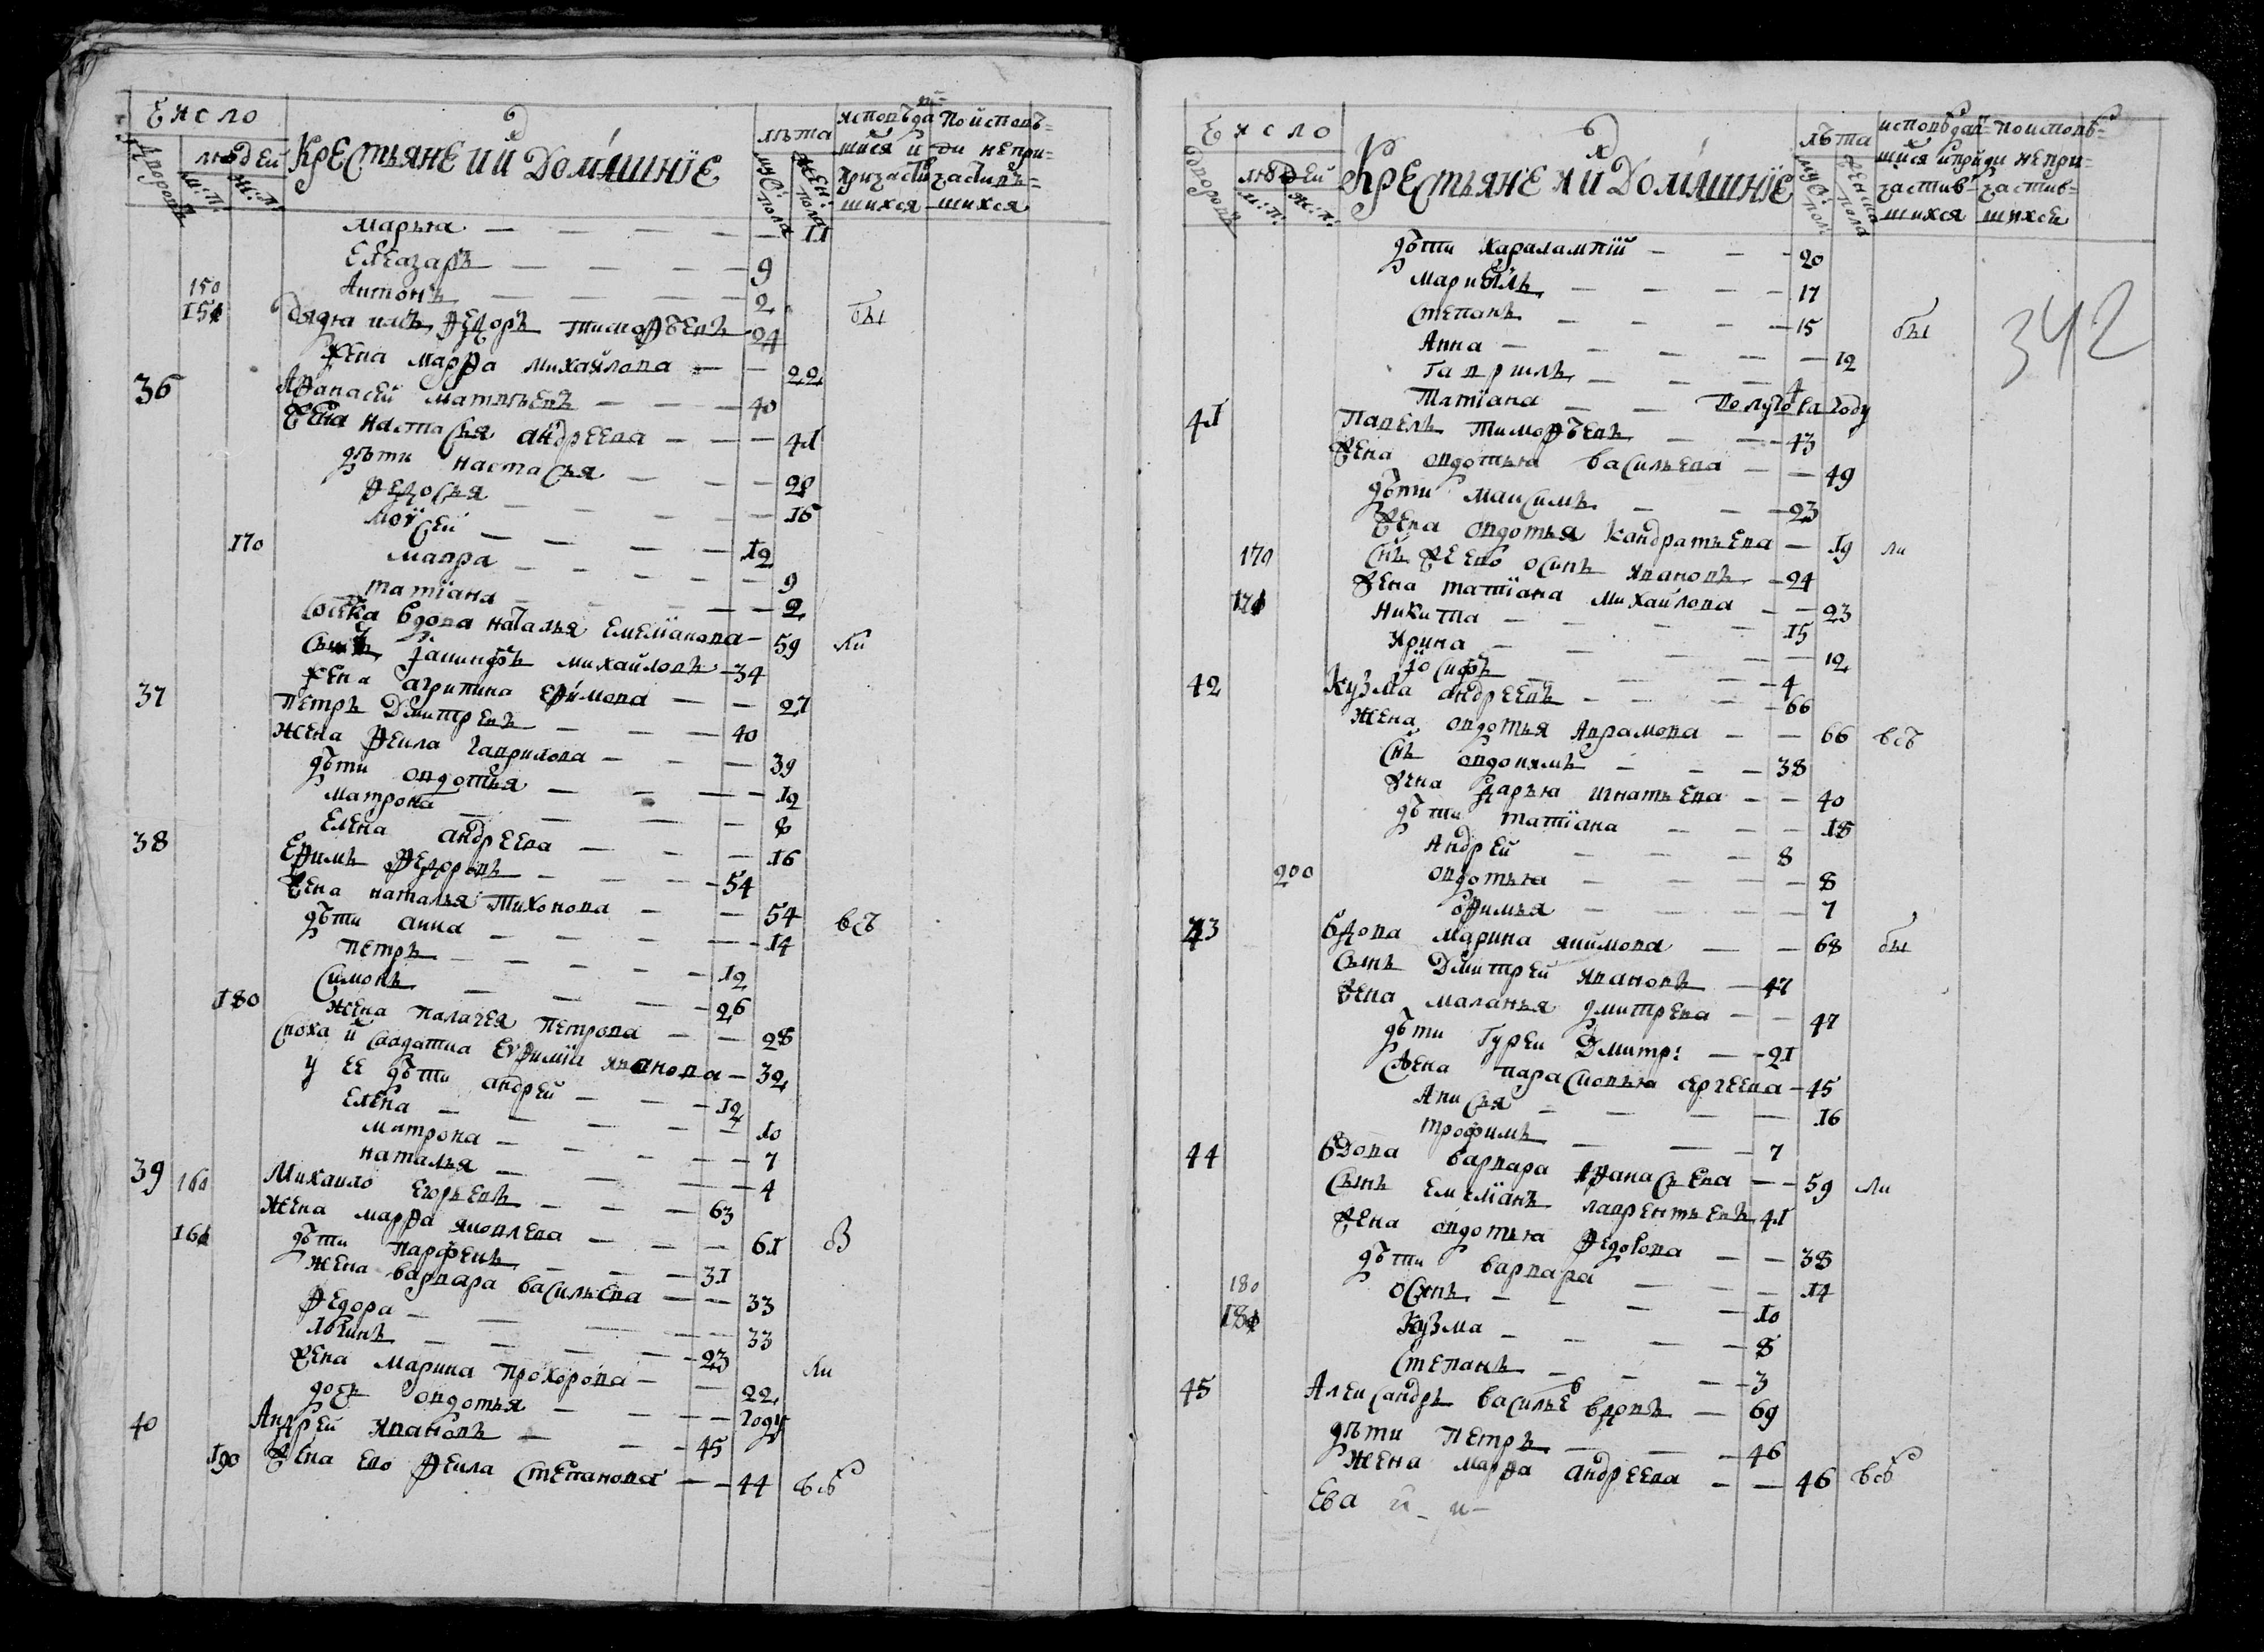 Число
дворовъ
людей
м: п:
ж: п:
Крестьяне и ихъ Домашніе
лѣта
мус: пола
жен: пола
исповѣдавшися и причастившихся
по исповѣди не причастившихся
Марья 11
Елеазаръ 9
150 Антонъ 2
151 Дядя имъ Ѳедоръ Тимоѳѣевъ 24 бы
жена Марѳа Михайлова 22
36 Аѳанасей Матвѣевъ 40
жена Настасья Андреева 41
дѣти Настасья 20
Ѳедосья 16
Моѵсей 12
170 Мавра 9
Татіана 2
вдова Наталья Емеліанова 59 ли
Михайловъ 34
жена Агрипина Еѳимова 27
37 Петръ Дмитревъ 40
жена Ѳекла Гаврилова 39
дѣти Овдотья 12
Матрона 8
Елена Андреева 16
38 Еѳимъ Ѳедоровъ 54
жена Наталья Тихонова 54 всѣ
дѣти Анна 14
Петръ 12
Симонъ 26
180 жена Палагея Петрова 28
сноха и салдатка Евѳимія Иванова 32
у ее дѣти Андрей 12
Елена 10
Матрона 7
Наталья 4
39 160 Михайло Егорьевъ 63
жена Марѳа Яковлева 61 в
161 дѣти Парѳенъ 31
жена Варвара Васильева 33
Ѳедора 33
Логинъ 23
жена Марина Прохорова 22 ли
дочь Овдотья году
40 Андрей Ивановъ 45
190 жена ево Ѳекла Степанова 44 всѣ
Число
дворовъ
людей
м: п:
ж: п:
Крестьяне и ихъ Домашніе
лѣта
мус: пола
женска пола
исповѣдавшися и причастившихся
по исповѣди не причастившихся
дѣти Харалампій 20
17
Степанъ 15 бы
342
Анна 12
Гаврилъ 4
Татіана полутора году
41 Павелъ Тимоѳѣевъ 43
жена Овдотья Васильева 49
дѣти Максимъ 23
жена Овдотья Кандратьева 19 ли
170 Осипъ Ивановъ 24
жена Татіана Михайлова 23
171 Никита 15
Ирина 12
Іосифъ 4
42 Кузма Андреевъ 66
жена Овдотья Аврамова 66 всѣ
снъ Овдокимъ 38
жена Дарья Игнатьева 40
дѣти Татіана 18
Андрей 8
200 Овдотья 8
Оѳимья 7
43 Вдова Марина Якимова 68 бы
сынъ Дмитрей Ивановъ 47
жена Маланья Дмитрева 47
дѣти Гурей Дмитр: 21
жена Парасковья Сергеева 45
Анисья 16
Трофимъ 7
44 Вдова Варвара Аѳанасьева 59 ли
сынъ Емеліанъ Лаврентьевъ 41
жена Овдотья Ѳедорова 38
дѣти Варвара 14
180 Осипъ 10
181 Кузма 8
Степанъ 3
45 Александръ Васильевъ вдовъ 69
дѣти Петръ 46
жена Марѳа Андреева 46 всѣ
Ева